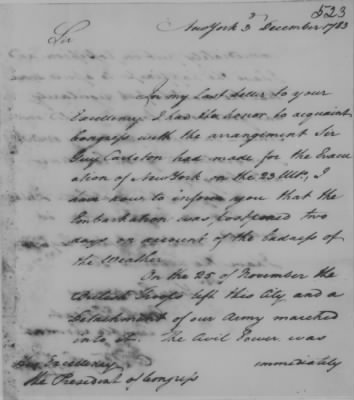 523
New York 3d December 1783
Sir
In my last letter to your
Excellency I had the honor to acquaint
Congress with the arrangement Sir
Guy Carleton had made for the Evacu
ation of New York on the 23 Ulto, I
have now to inform you that the
Embarkation was postponed two
days on account of the badness of
the Weather
On the 25 of November the
British Troops left this City and a
Detachment of our Army marched
into it. The Civil Power was
His Excellency immediately
the President of Congress